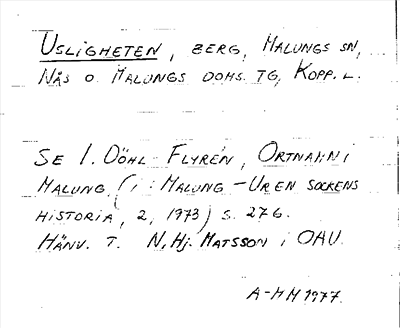 USLIGHETEN, BERG, MALUNGS SN,
NÅS O. MALUNGS DOMS. TG, KOPP. L.
SE I. DÖHL FLYRÉN, ORTNAMN I
MALUNG (i: MALUNG – UR EN SOCKENS
HISTORIA, 2, 1973) S. 276.
HÄNV. T. N. Hj. MATSSON i OAU.
A-MH 1977.